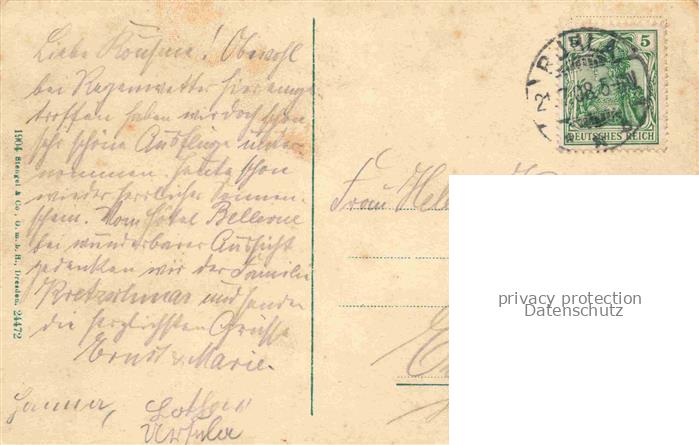 Liebe Kousine! Obwohl
bei Regenwetter hier einge
troffen haben wir doch schon
sehr schöne Ausflüge unter-
nommen. Heute schon
wieder herrlicher Sonnen-
schein. Vom Hôtel Bellevue
bei wunderbarer Aussicht
gedenken wir der Familie
Kretzschmar und senden
die herzlichsten Grüsse
Ernst u. Marie.
Hanna, Lothar
Ursula
1904 Stengel & Co., G. m. b. H., Dresden 24472
RUHLA
5
DEUTSCHES REICH
Frau
privacy protection
Datenschutz